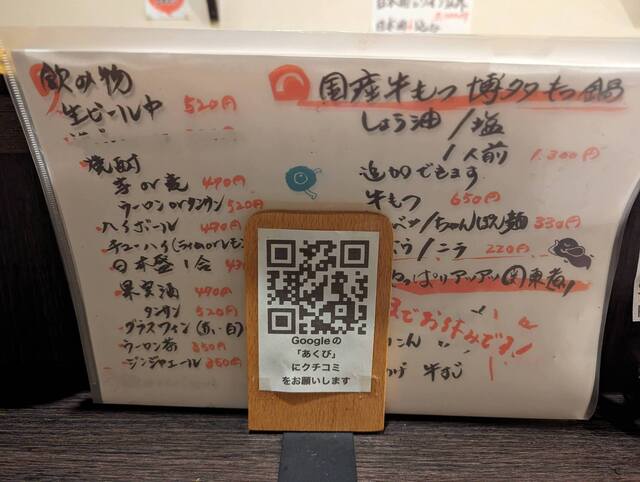 飲み物
生ビール中 520円
焼酎
芋or麦 490円
ウーロンorタンサン 520円
ハイボール 490円
チューハイ(ライムorレモン)
日本盛1合
果実酒 490円
タンサン 520円
グラスワイン(赤・白)
ウーロン茶 350円
ジンジャエール 350円
国産牛もつ 博多もつ鍋
しょう油/塩
1人前 1.300円
追加できます
牛もつ 650円
ベツ/ちゃんぽん麺 330円
ウ/ニラ 220円
っぱりアツアツ関東煮!
までお休みです!
こん
牛すじ
Googleの
「あくび」
にクチコミ
をお願いします